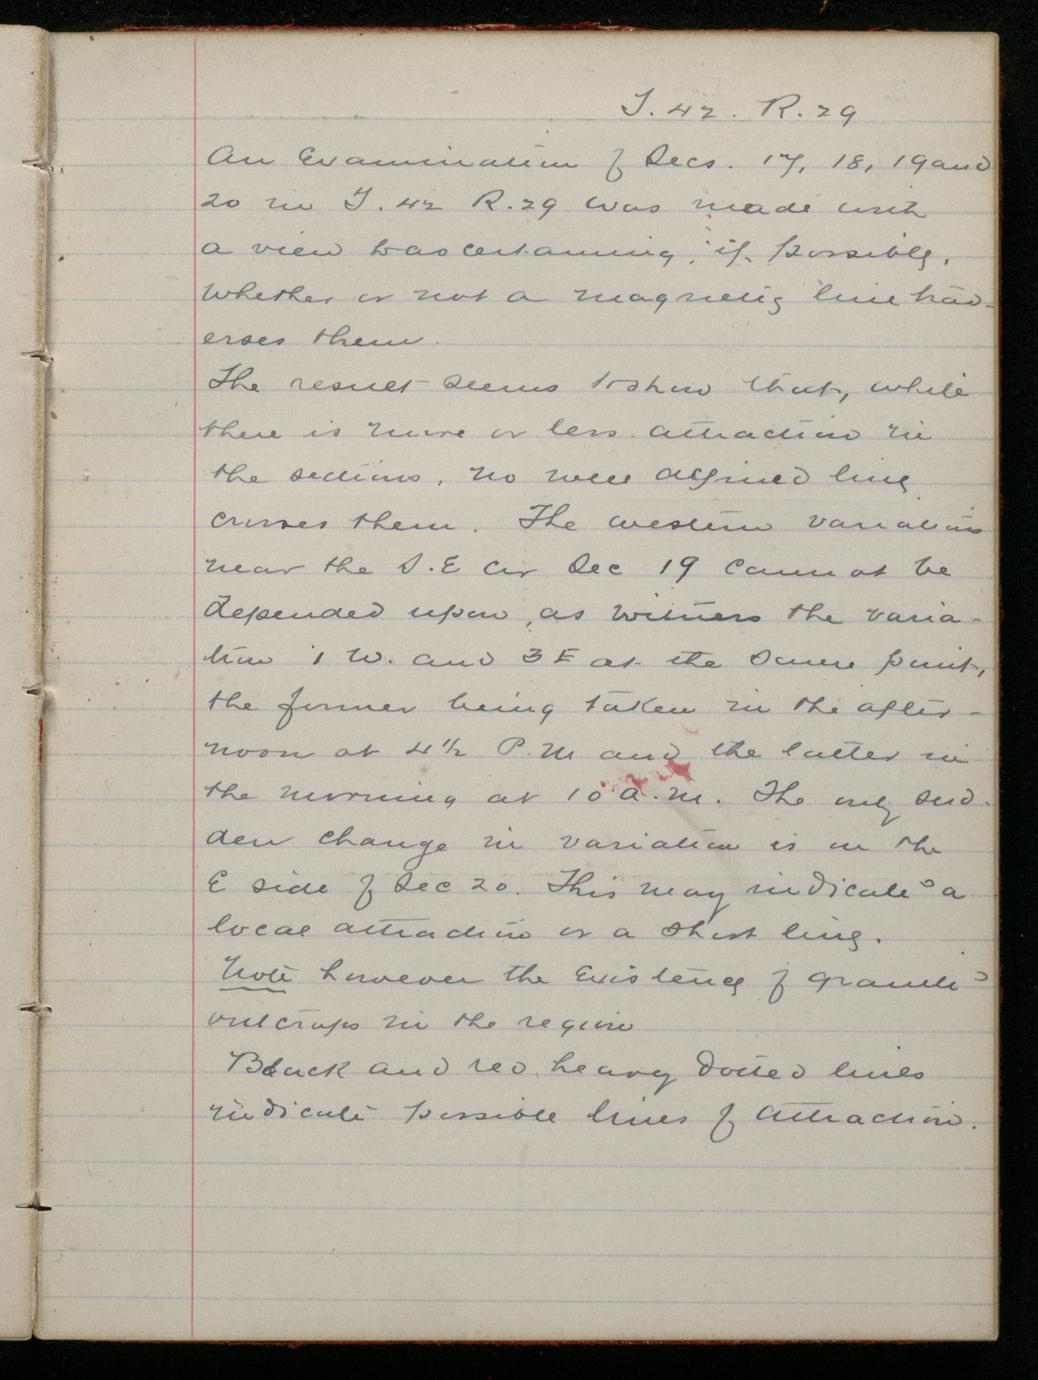 T. 42. R. 29
An Examination of Secs. 17, 18, 19 and
20 in T. 42 R. 29 was made with
a view to ascertaining, if possible,
whether or not a magnetic line trav-
erses them.
The result seems to show that, while
there is more or less attraction in
the sections, no well defined line
crosses them. The western variations
near the S.E cor Sec 19 cannot be
depended upon, as witness the varia-
tion 1 W. and 3 E at the same point,
the former being taken in the after-
noon at 4½ P.M and the latter in
the morning at 10 a.m. The only sud-
den change in variation is on the
E side of Sec 20. This may indicate a
local attraction or a short line.
Note however the Existence of granite
outcrops in the region
Black and red heavy dotted lines
indicate possible lines of attraction.